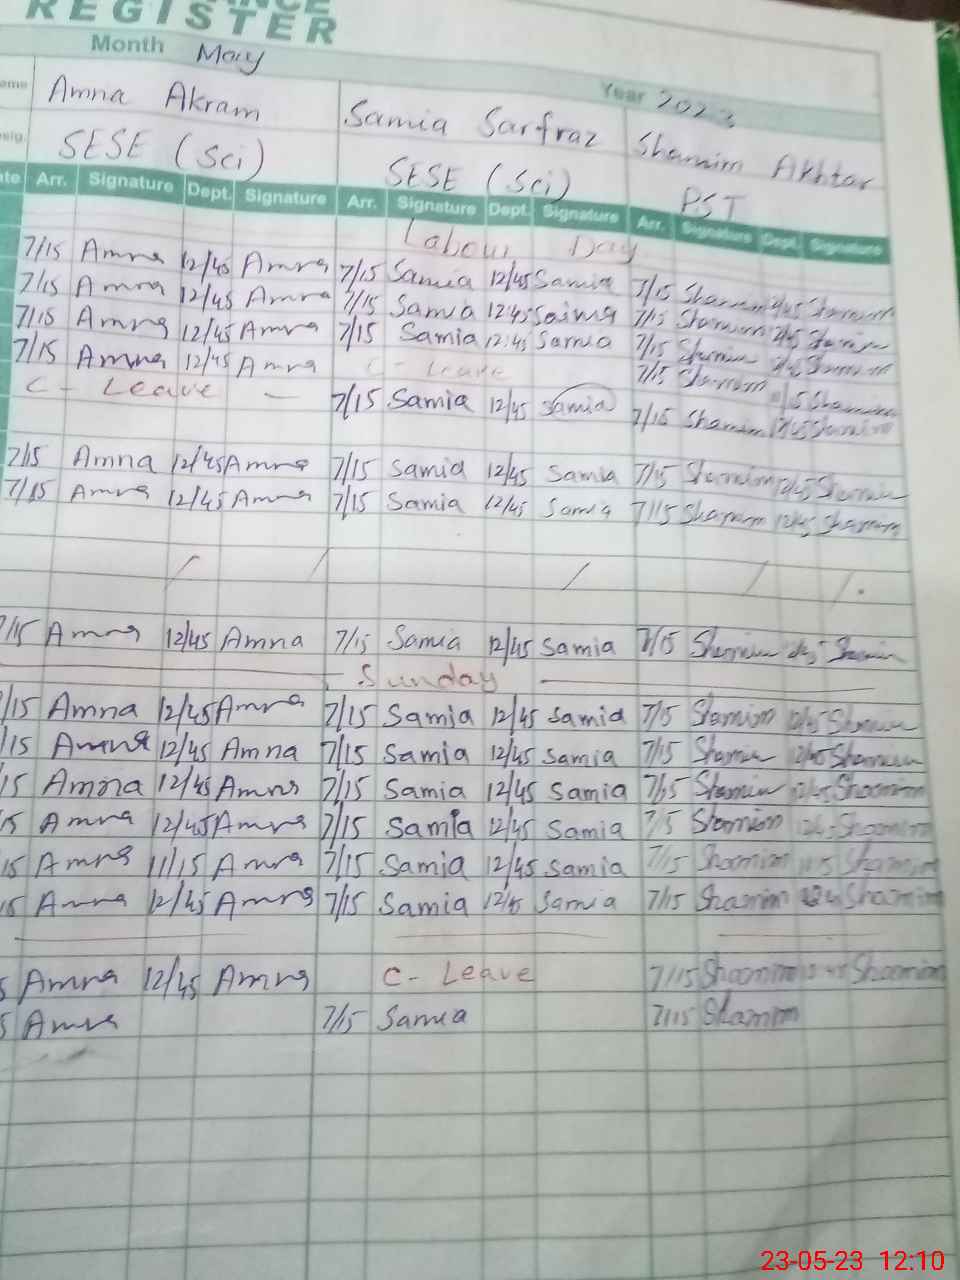 REGISTER
Month May Year 2023
Amna Akram Samia Sarfraz Shamim Akhtar
SESE (Sci) SESE (Sci) PST
Arr. Signature Dept. Signature Arr. Signature Dept. Signature Arr. Signature Dept. Signature
Labour Day
7/15 Amna 12/45 Amna 7/15 Samia 12/45 Samia 7/15 Shamim 12/45 Shamim
7/15 Amna 12/45 Amna 7/15 Samia 12:45 Saima 7/15 Shamim 12/45 Shamim
7/15 Amna 12/45 Amna 7/15 Samia 12:45 Samia 7/15 Shamim 12/45 Shamim
7/15 Amna 12/45 Amna C - Leave 7/15 Shamim Shamim
C - Leave — 7/15 Samia 12/45 Samia 7/15 Shamim 12/45 Shamim
7/15 Amna 12/45 Amna 7/15 Samia 12/45 Samia 7/15 Shamim 12/45 Shamim
7/15 Amna 12/45 Amna 7/15 Samia 12/45 Samia 7/15 Shamim 12/45 Shamim
/ / / / /.
7/15 Amna 12/45 Amna 7/15 Samia 12/45 Samia 7/15 Shamim 12/45 Shamim
Sunday
/15 Amna 12/45 Amna 7/15 Samia 12/45 Samia 7/15 Shamim 12/45 Shamim
/15 Amna 12/45 Amna 7/15 Samia 12/45 Samia 7/15 Shamim 12/45 Shamim
15 Amna 12/45 Amna 7/15 Samia 12/45 Samia 7/15 Shamim 12/45 Shamim
15 Amna 12/45 Amna 7/15 Samia 12/45 Samia 7/15 Shamim Shamim
15 Amna 11/15 Amna 7/15 Samia 12/45 Samia 7/15 Shamim Shamim
15 Amna 12/45 Amna 7/15 Samia 12/45 Samia 7/15 Shamim 12/45 Shamim
5 Amna 12/45 Amna C - Leave 7/15 Shamim 12/45 Shamim
5 Amna 7/15 Samia 7/15 Shamim
23-05-23 12:10